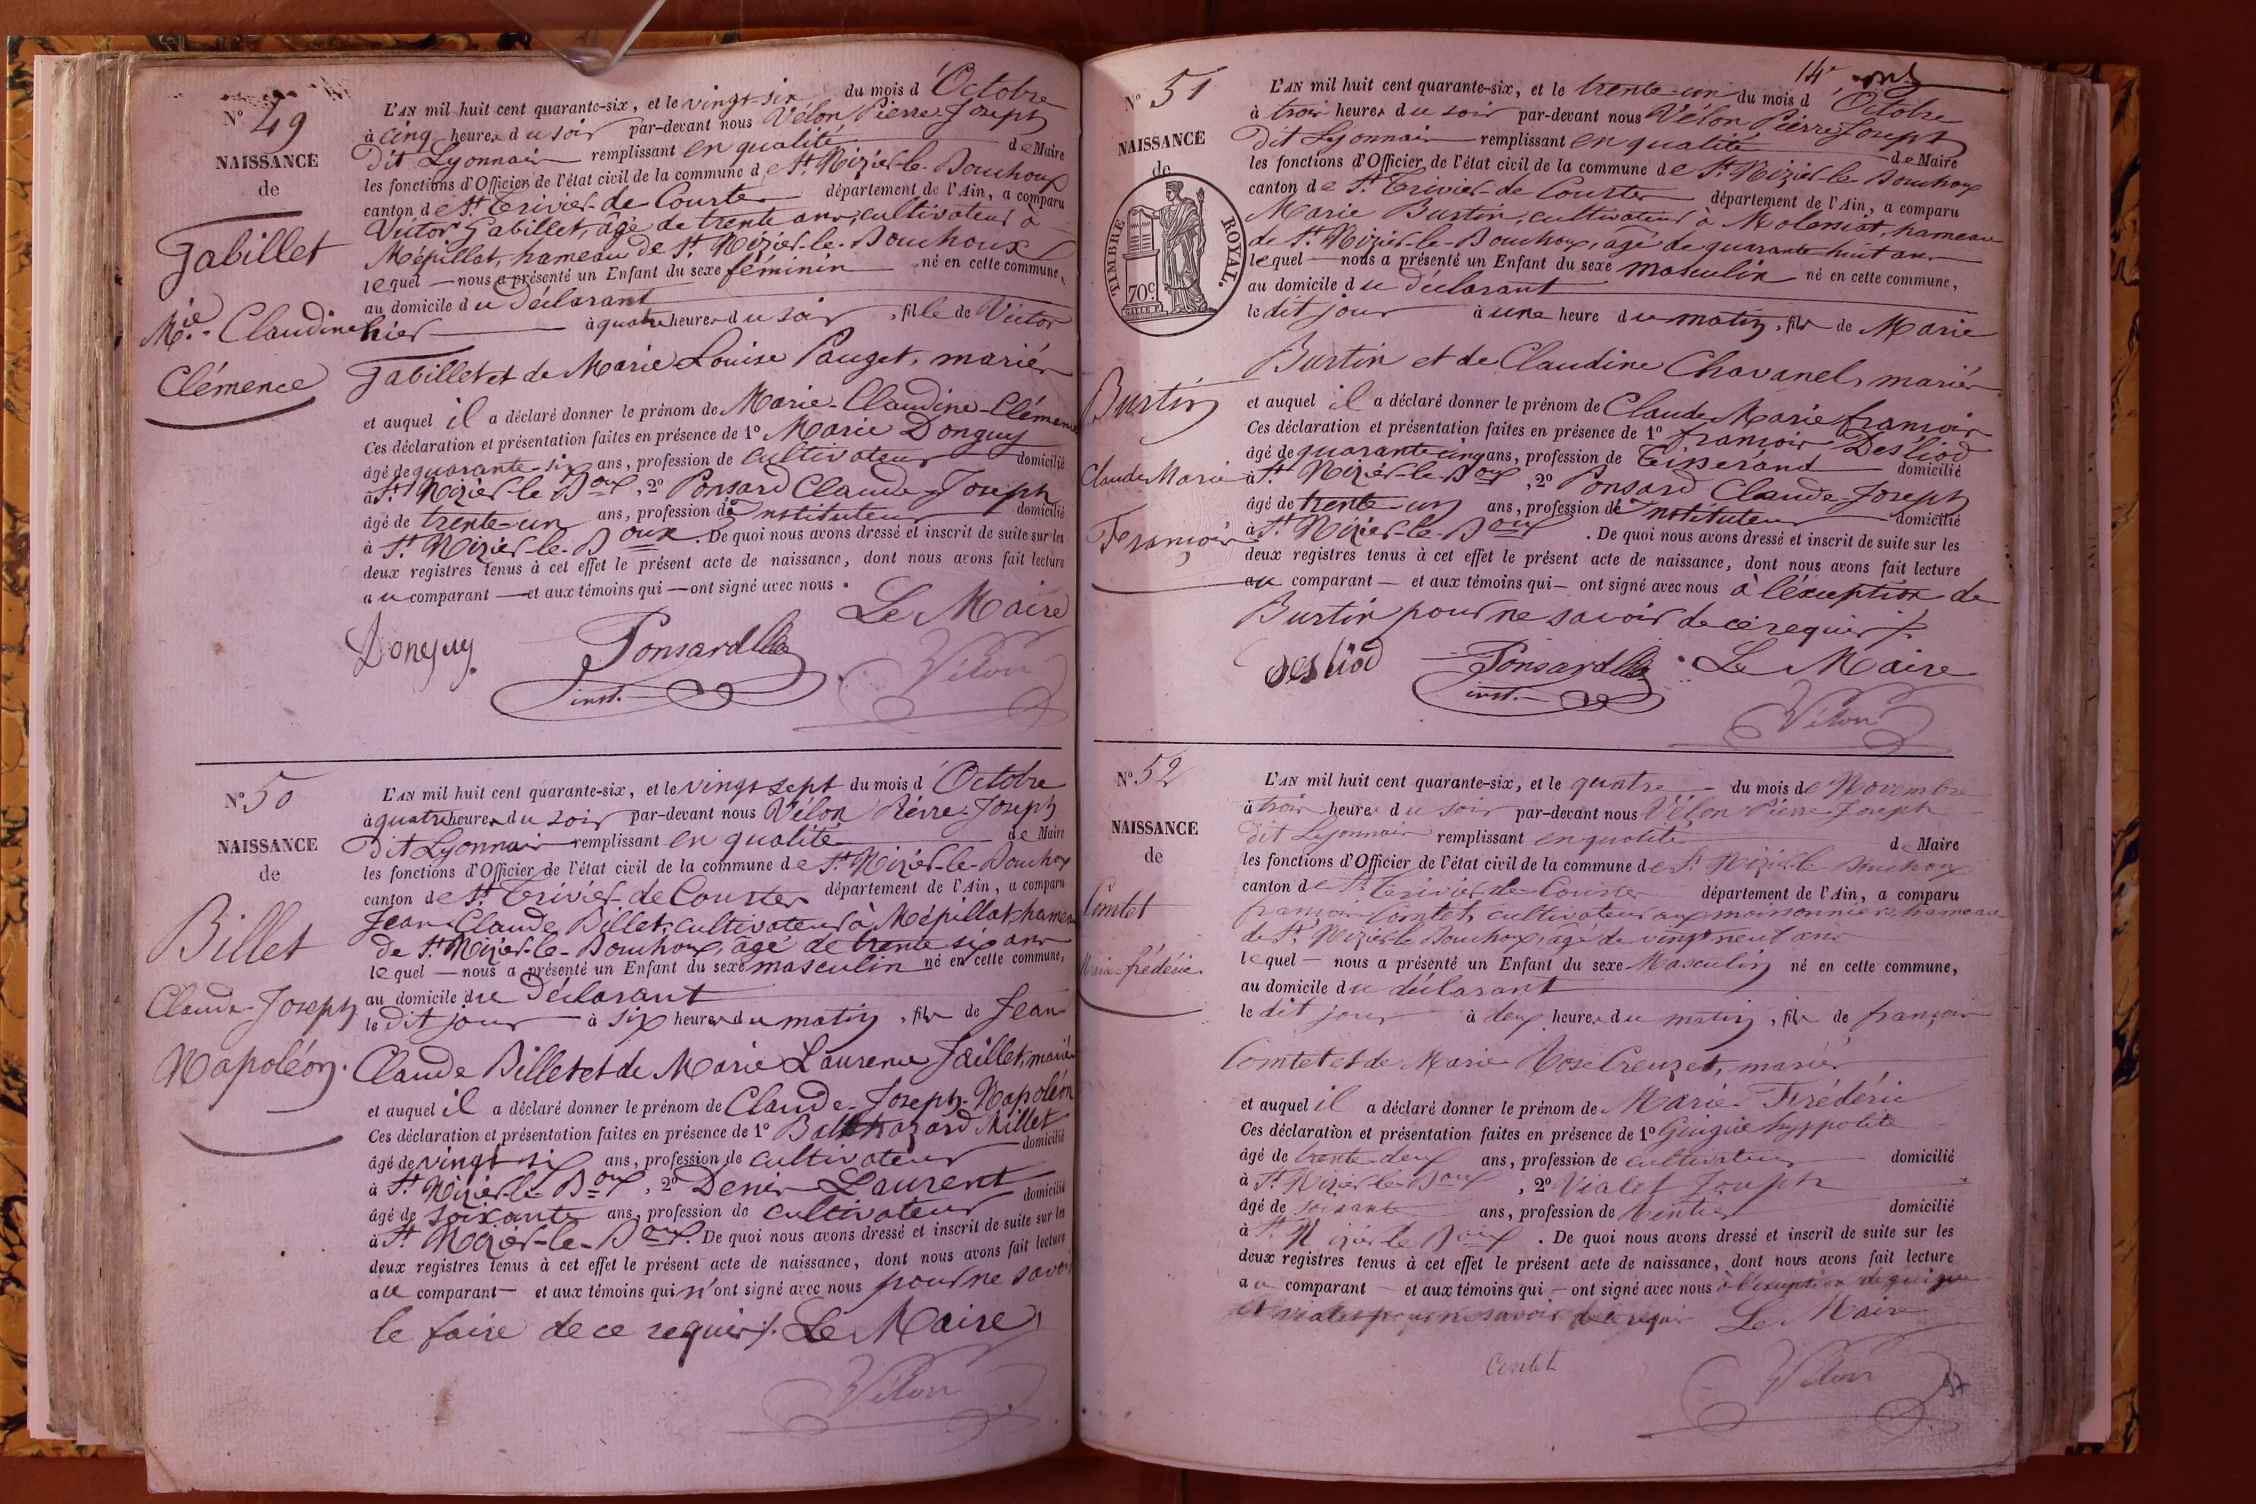 N° 49
NAISSANCE
de
Gabillet
M.ie Claudine
Clémence
L'AN mil huit cent quarante-six, et le vingt-six du mois d'Octobre
à cinq heures du soir par-devant nous Vélon Pierre Joseph
dit Lyonnais remplissant en qualité de Maire
les fonctions d'Officier de l'état civil de la commune de St. Nizier-le-Bouchoux
canton de St. Trivier-de-Courtes département de l'Ain, a comparu
Victor Gabillet, âgé de trente ans, cultivateur à
Mépillat, hameau de St. Nizier-le-Bouchoux
lequel nous a présenté un Enfant du sexe féminin né en cette commune,
au domicile du déclarant
hier à quatre heures du soir, fille de Victor
Gabillet et de Marie Louise Pauget, mariés
et auquel il a déclaré donner le prénom de Marie-Claudine-Clémence
Ces déclaration et présentation faites en présence de 1° Marie Donguy
âgé de quarante-six ans, profession de cultivateur domicilié
à St. Nizier-le-Boux, 2° Ponsard Claude-Joseph
âgé de trente-un ans, profession d'instituteur domicilié
à St. Nizier-le-Boux. De quoi nous avons dressé et inscrit de suite sur les
deux registres tenus à cet effet le présent acte de naissance, dont nous avons fait lecture
au comparant et aux témoins qui ont signé avec nous.
Le Maire
Donguy
Ponsard
inst.
Vélon
N° 50
NAISSANCE
de
Billet
Claude-Joseph
Napoléon.
L'AN mil huit cent quarante-six, et le vingt sept du mois d'Octobre
à quatre heures du soir par-devant nous Vélon Pierre-Joseph
dit Lyonnais remplissant en qualité de Maire
les fonctions d'Officier de l'état civil de la commune de St. Nizier-le-Bouchoux
canton de St. Trivier-de-Courtes département de l'Ain, a comparu
Jean-Claude Billet, cultivateur à Mépillat hameau
de St. Nizier-le-Bouchoux, âgé de trente six ans
lequel nous a présenté un Enfant du sexe masculin né en cette commune,
au domicile du déclarant
le dit jour à six heures du matin, fils de Jean
Claude Billet et de Marie Laurence Jaillet, mariés
et auquel il a déclaré donner le prénom de Claude-Joseph-Napoléon
Ces déclaration et présentation faites en présence de 1° Balthazard Millet
âgé de vingt-six ans, profession de cultivateur domicilié
à St. Nizier-le-Boux, 2° Denis Laurent
âgé de soixante ans, profession de cultivateur domicilié
à St. Nizier-le-Boux. De quoi nous avons dressé et inscrit de suite sur les
deux registres tenus à cet effet le présent acte de naissance, dont nous avons fait lecture
au comparant et aux témoins qui n'ont signé avec nous pour ne savoir
le faire de ce requis. Le Maire
Vélon
14e
N° 51
NAISSANCE
de
TIMBRE ROYAL.
70c
Burtin
Claude Marie
François
L'AN mil huit cent quarante-six, et le trente-un du mois d'Octobre
à trois heures du soir par-devant nous Vélon Pierre Joseph
dit Lyonnais remplissant en qualité de Maire
les fonctions d'Officier de l'état civil de la commune de St. Nizier-le-Bouchoux
canton de St. Trivier-de-Courtes département de l'Ain, a comparu
Marie Burtin, cultivateur à Molessiat, hameau
de St. Nizier-le-Bouchoux, âgé de quarante-huit ans
lequel nous a présenté un Enfant du sexe masculin né en cette commune,
au domicile du déclarant
le dit jour à une heure du matin, fils de Marie
Burtin et de Claudine Chavanel, mariés
et auquel il a déclaré donner le prénom de Claude Marie françois
Ces déclaration et présentation faites en présence de 1° françois Desliod
âgé de quarante cinq ans, profession de Tisserand domicilié
à St. Nizier-le-Boux, 2° Ponsard Claude-Joseph
âgé de trente-un ans, profession d'instituteur domicilié
à St. Nizier-le-Boux. De quoi nous avons dressé et inscrit de suite sur les
deux registres tenus à cet effet le présent acte de naissance, dont nous avons fait lecture
au comparant et aux témoins qui ont signé avec nous à l'éxception de
Burtin pour ne savoir de ce requis.
Desliod
Ponsard
inst.
Le Maire
Vélon
N° 52
NAISSANCE
de
Comtet
Marie frédéric
L'AN mil huit cent quarante-six, et le quatre du mois de Novembre
à trois heures du soir par-devant nous Vélon Pierre Joseph
dit Lyonnais remplissant en qualité de Maire
les fonctions d'Officier de l'état civil de la commune de St. Nizier-le-Bouchoux
canton de St. Trivier-de-Courtes département de l'Ain, a comparu
françois Comtet, cultivateur aux moissonniers, hameau
de St. Nizier-le-Bouchoux, âgé de vingt neuf ans
lequel nous a présenté un Enfant du sexe Masculin né en cette commune,
au domicile du déclarant
le dit jour à deux heures du matin, fils de françois
Comtet et de Marie Rose Creuzet, mariés
et auquel il a déclaré donner le prénom de Marie Frédéric
Ces déclaration et présentation faites en présence de 1° Guigue hyppolite
âgé de trente-deux ans, profession de cultivateur domicilié
à St. Nizier-le-Boux, 2° Vialet Joseph
âgé de soixante ans, profession de rentier domicilié
à St. Nizier-le-Boux. De quoi nous avons dressé et inscrit de suite sur les
deux registres tenus à cet effet le présent acte de naissance, dont nous avons fait lecture
au comparant et aux témoins qui ont signé avec nous à l'exception de guigue
et vialet pour ne savoir de ce requis Le Maire
Comtet
Vélon